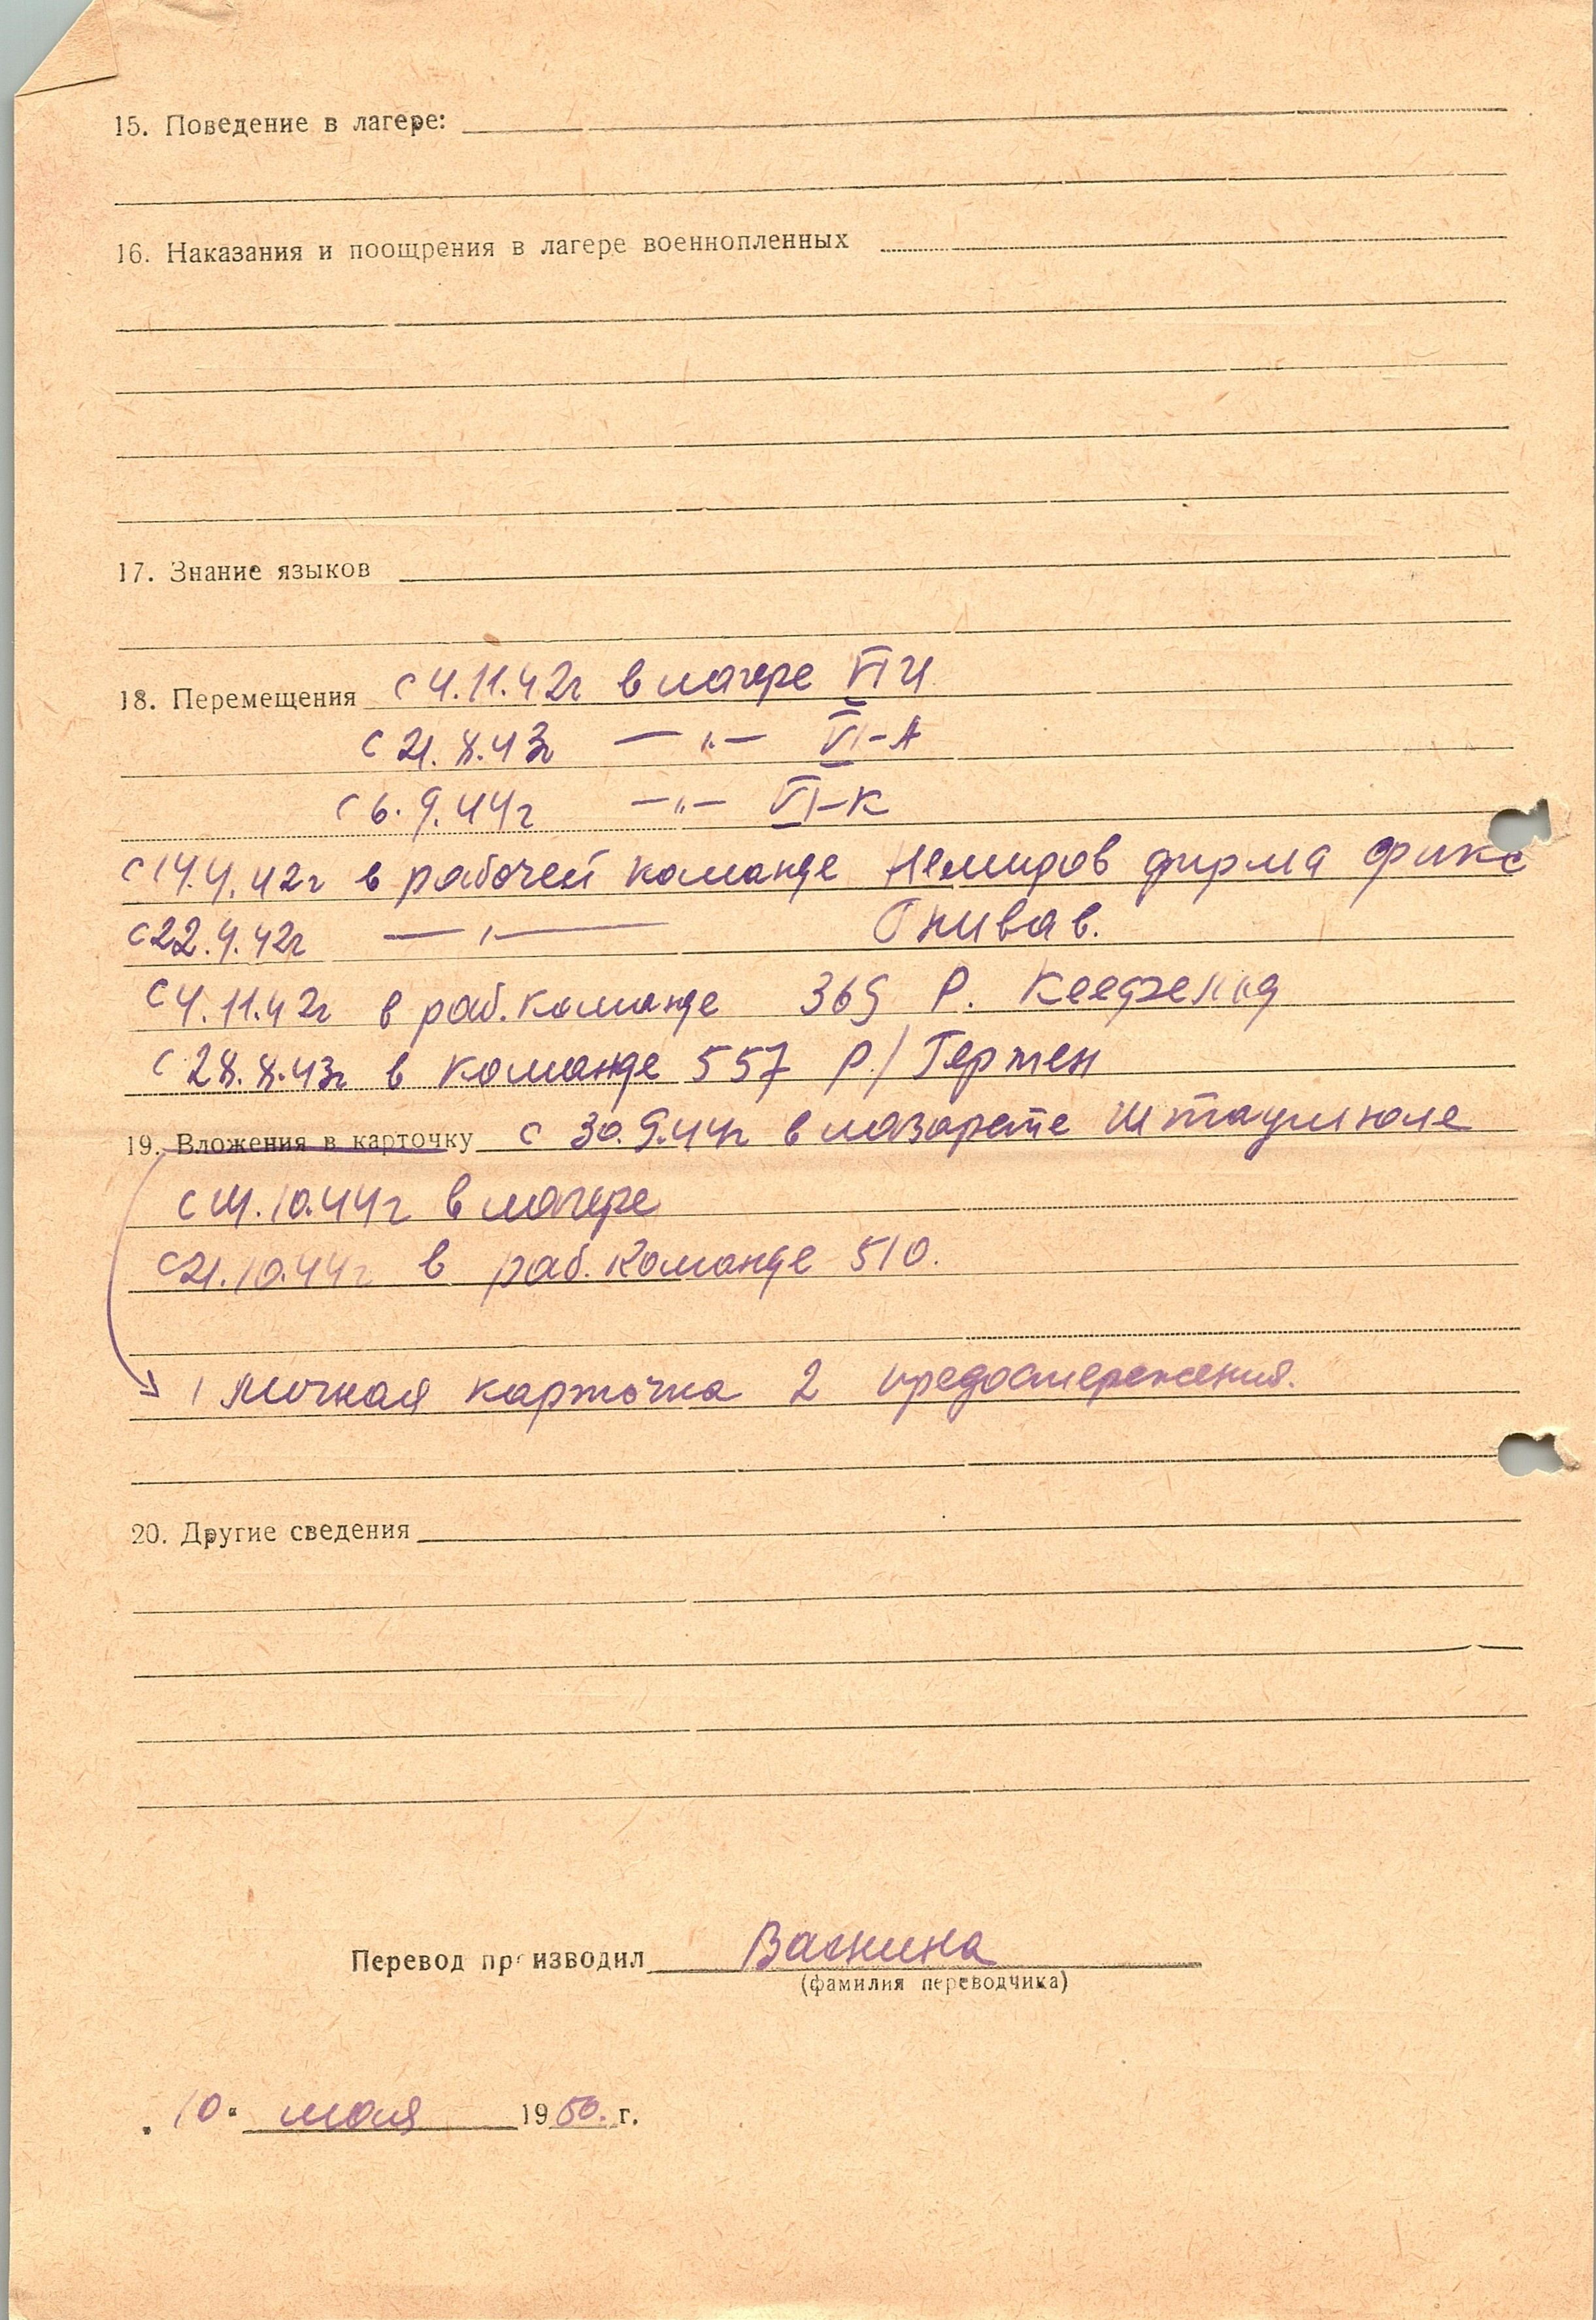 15. Поведение в лагере:
16. Наказания и поощрения в лагере военнопленных
17. Знание языков
18. Перемещения с 4.11.42г в лагере VI
с 21.8.43г — " — VI-А
с 6.9.44г — " — VI-К
с 14.4.42г в рабочей команде фирма Фикс
с 22.4.42г — " — Гнивав.
с 4.11.42г в раб. команде 369 Р.
с 28.8.43г в команде 557 Р/ Гертен
19. Вложения в карточку с 30.9.44г в лазарете Штаумюле
с 11.10.44г в лагере
с 21.10.44г в раб. команде 510.
1 личная карточка 2 предостережения.
20. Другие сведения
Перевод производил Важнина
(фамилия переводчика)
„10" мая 1950. г.